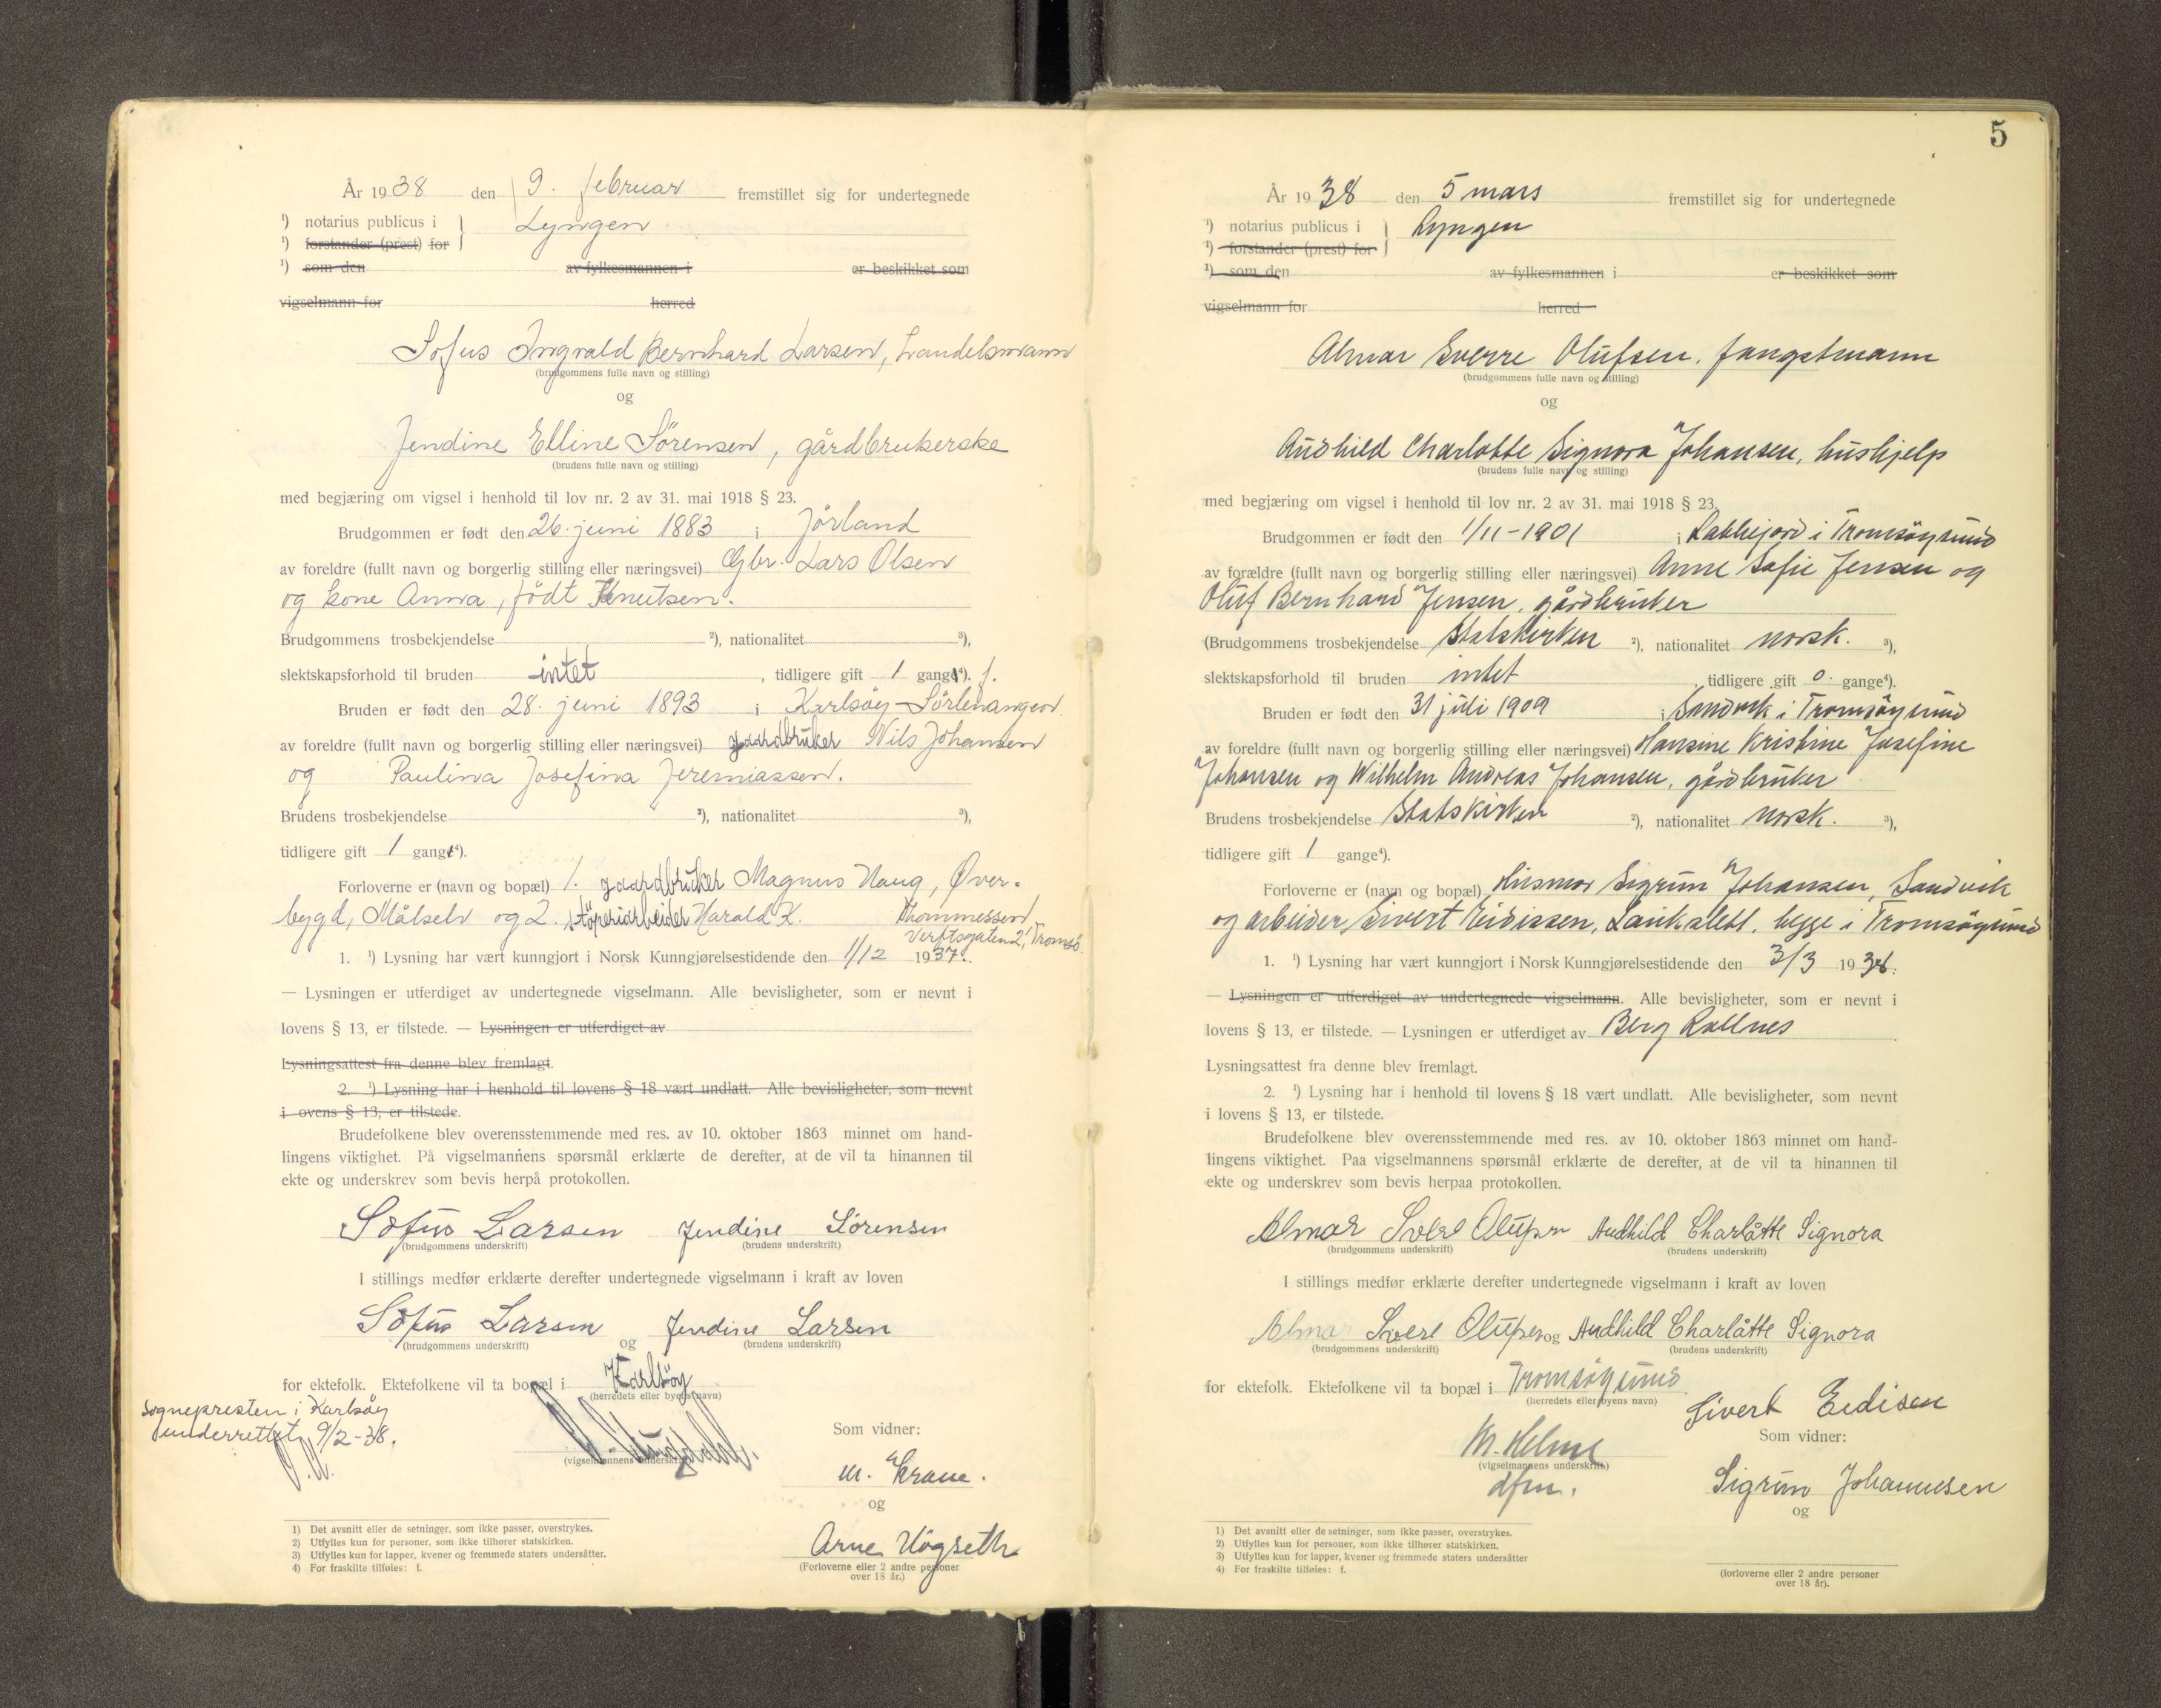 År 1938 den 9. februar fremstillet sig for undertegnede
¹) notarius publicus i Lyngen
¹) forstander (prest) for
¹) som den av fylkesmannen i er beskikket som
vigselmann for herred
Sofus Ingvald Bernhard Larsen, handelsmann
(brudgommens fulle navn og stilling)
og
Jendine Elline Sörensen, gårdbrukerske
(brudens fulle navn og stilling)
med begjæring om vigsel i henhold til lov nr. 2 av 31. mai 1918 § 23.
Brudgommen er født den 26. juni 1883 i Jörland
av foreldre (fullt navn og borgerlig stilling eller næringsvei) Gbr. Lars Olsen
og kone Anna, födt Knutsen.
Brudgommens trosbekjendelse ²), nationalitet ³),
slektskapsforhold til bruden intet, tidligere gift 1 gang⁴). f.
Bruden er født den 28. juni 1893 i Karlsöy-Sörlenangen.
av foreldre (fullt navn og borgerlig stilling eller næringsvei) gaardbruker Nils Johansen
og Paulina Josefina Jeremiassen.
Brudens trosbekjendelse ²), nationalitet ³),
tidligere gift 1 gang⁴).
Forloverne er (navn og bopæl) 1. gaardbruker Magnus Haug, Øver-
bygd, Målselv og 2. støperiarbeider Harald K. Thommessen,
Verftsgaten 2, Tromsö.
1. ¹) Lysning har vært kunngjort i Norsk Kunngjørelsestidende den 1/12 1937.
— Lysningen er utferdiget av undertegnede vigselmann. Alle bevisligheter, som er nevnt i
lovens § 13, er tilstede. — Lysningen er utferdiget av
Lysningsattest fra denne blev fremlagt.
2. ¹) Lysning har i henhold til lovens § 18 vært undlatt. Alle bevisligheter, som nevnt
i ovens § 13, er tilstede.
Brudefolkene blev overensstemmende med res. av 10. oktober 1863 minnet om hand-
lingens viktighet. På vigselmannens spørsmål erklærte de derefter, at de vil ta hinannen til
ekte og underskrev som bevis herpå protokollen.
Sofus Larsen Jendine Sörensen
(brudgommens underskrift) (brudens underskrift)
I stillings medfør erklærte derefter undertegnede vigselmann i kraft av loven
Sofus Larsen og Jendine Larsen
(brudgommens underskrift) (brudens underskrift)
for ektefolk. Ektefolkene vil ta bopæl i Karlsöy
(herredets eller byens navn)
Sognepresten i Karlsöy
underrettet 9/2-38.
(vigselmannens underskrift)
Som vidner:
M. Krane.
og
Arne Högseth
(Forloverne eller 2 andre personer
over 18 år.)
1) Det avsnitt eller de setninger, som ikke passer, overstrykes.
2) Utfylles kun for personer, som ikke tilhører statskirken.
3) Utfylles kun for lapper, kvener og fremmede staters undersåtter.
4) For fraskilte tilføies: f.
5
År 1938 den 5 mars fremstillet sig for undertegnede
¹) notarius publicus i Lyngen
¹) forstander (prest) for
¹) som den av fylkesmannen i er beskikket som
vigselmann for herred
Almar Sverre Olufsen, fangstmann
(brudgommens fulle navn og stilling)
og
Audhild Charlotte Signora Johansen, hushjelp
(brudens fulle navn og stilling)
med begjæring om vigsel i henhold til lov nr. 2 av 31. mai 1918 § 23.
Brudgommen er født den 1/11-1901 i Kabbefjord i Tromsöysund
av forældre (fullt navn og borgerlig stilling eller næringsvei) Anne Sofie Jensen og
Oluf Bernhard Jensen, gårdbruker
(Brudgommens trosbekjendelse Statskirken ²), nationalitet norsk. ³),
slektskapsforhold til bruden intet, tidligere gift 0. gange⁴).
Bruden er født den 31 juli 1909 i Sandvik i Tromsöysund
av foreldre (fullt navn og borgerlig stilling eller næringsvei) Hansine Kristine Josefine
Johansen og Wilhelm Andreas Johansen, gårdbruker
Brudens trosbekjendelse Statskirken ²), nationalitet norsk. ³),
tidligere gift 1 gange⁴).
Forloverne er (navn og bopæl) Husmor Sigrun Johansen, Sandvik
og arbeider Sivert Eidissen, Laukslett, begge i Tromsöysund
1. ¹) Lysning har vært kunngjort i Norsk Kunngjørelsestidende den 3/3 1938.
— Lysningen er utferdiget av undertegnede vigselmann. Alle bevisligheter, som er nevnt i
lovens § 13, er tilstede. — Lysningen er utferdiget av Berg Kollnes
Lysningsattest fra denne blev fremlagt.
2. ¹) Lysning har i henhold til lovens § 18 vært undlatt. Alle bevisligheter, som nevnt
i lovens § 13, er tilstede.
Brudefolkene blev overensstemmende med res. av 10. oktober 1863 minnet om hand-
lingens viktighet. Paa vigselmannens spørsmål erklærte de derefter, at de vil ta hinannen til
ekte og underskrev som bevis herpaa protokollen.
Almar Sverre Olufsen Audhild Charlåtte Signora
(brudgommens underskrift) (brudens underskrift)
I stillings medfør erklærte derefter undertegnede vigselmann i kraft av loven
Almar Sverre Olufsen og Audhild Charlåtte Signora
(brudgommens underskrift) (brudens underskrift)
for ektefolk. Ektefolkene vil ta bopæl i Tromsöysund
(herredets eller byens navn)
Sivert Eedisen
M. Helme
(vigselmannens underskrift)
dfm.
Som vidner:
Sigrun Johannesen
og
(forloverne eller 2 andre personer
over 18 år).
1) Det avsnitt eller de setninger, som ikke passer, overstrykes.
2) Utfylles kun for personer, som ikke tilhører statskirken.
3) Utfylles kun for lapper, kvener og fremmede staters undersåtter
4) For fraskilte tilføies: f.